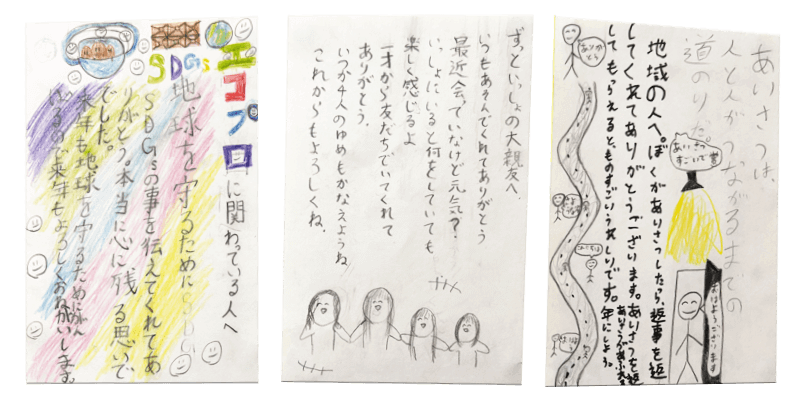 エコプロに関わっている人へ
SDGs
地球を守るためにSDG
SDGsの事を伝えてくれてあ
りがとう。本当に心に残る思いで
でした。
来年も地球を守るためにがん
ばるので来年もよろしくおねがいします。
ずっといっしょの大親友へ
いつもあそんでくれてありがとう
最近会っていないけど元気？
いっしょにいると何をしていても
楽しく感じるよ
一才から友だちでいてくれて
ありがとう。
いつか4人のゆめもかなえようね
これからもよろしくね。
あいさつは、
人と人がつながるまでの
道のりだ。
あいさつ
すごいで賞
おはようございます
地域の人へ。ぼくがあいさつしたら、返事を返
してくれてありがとうございます。あいさつを返
してもらえると、ものすごいうれしいです。
年にしよう。
ありがとう